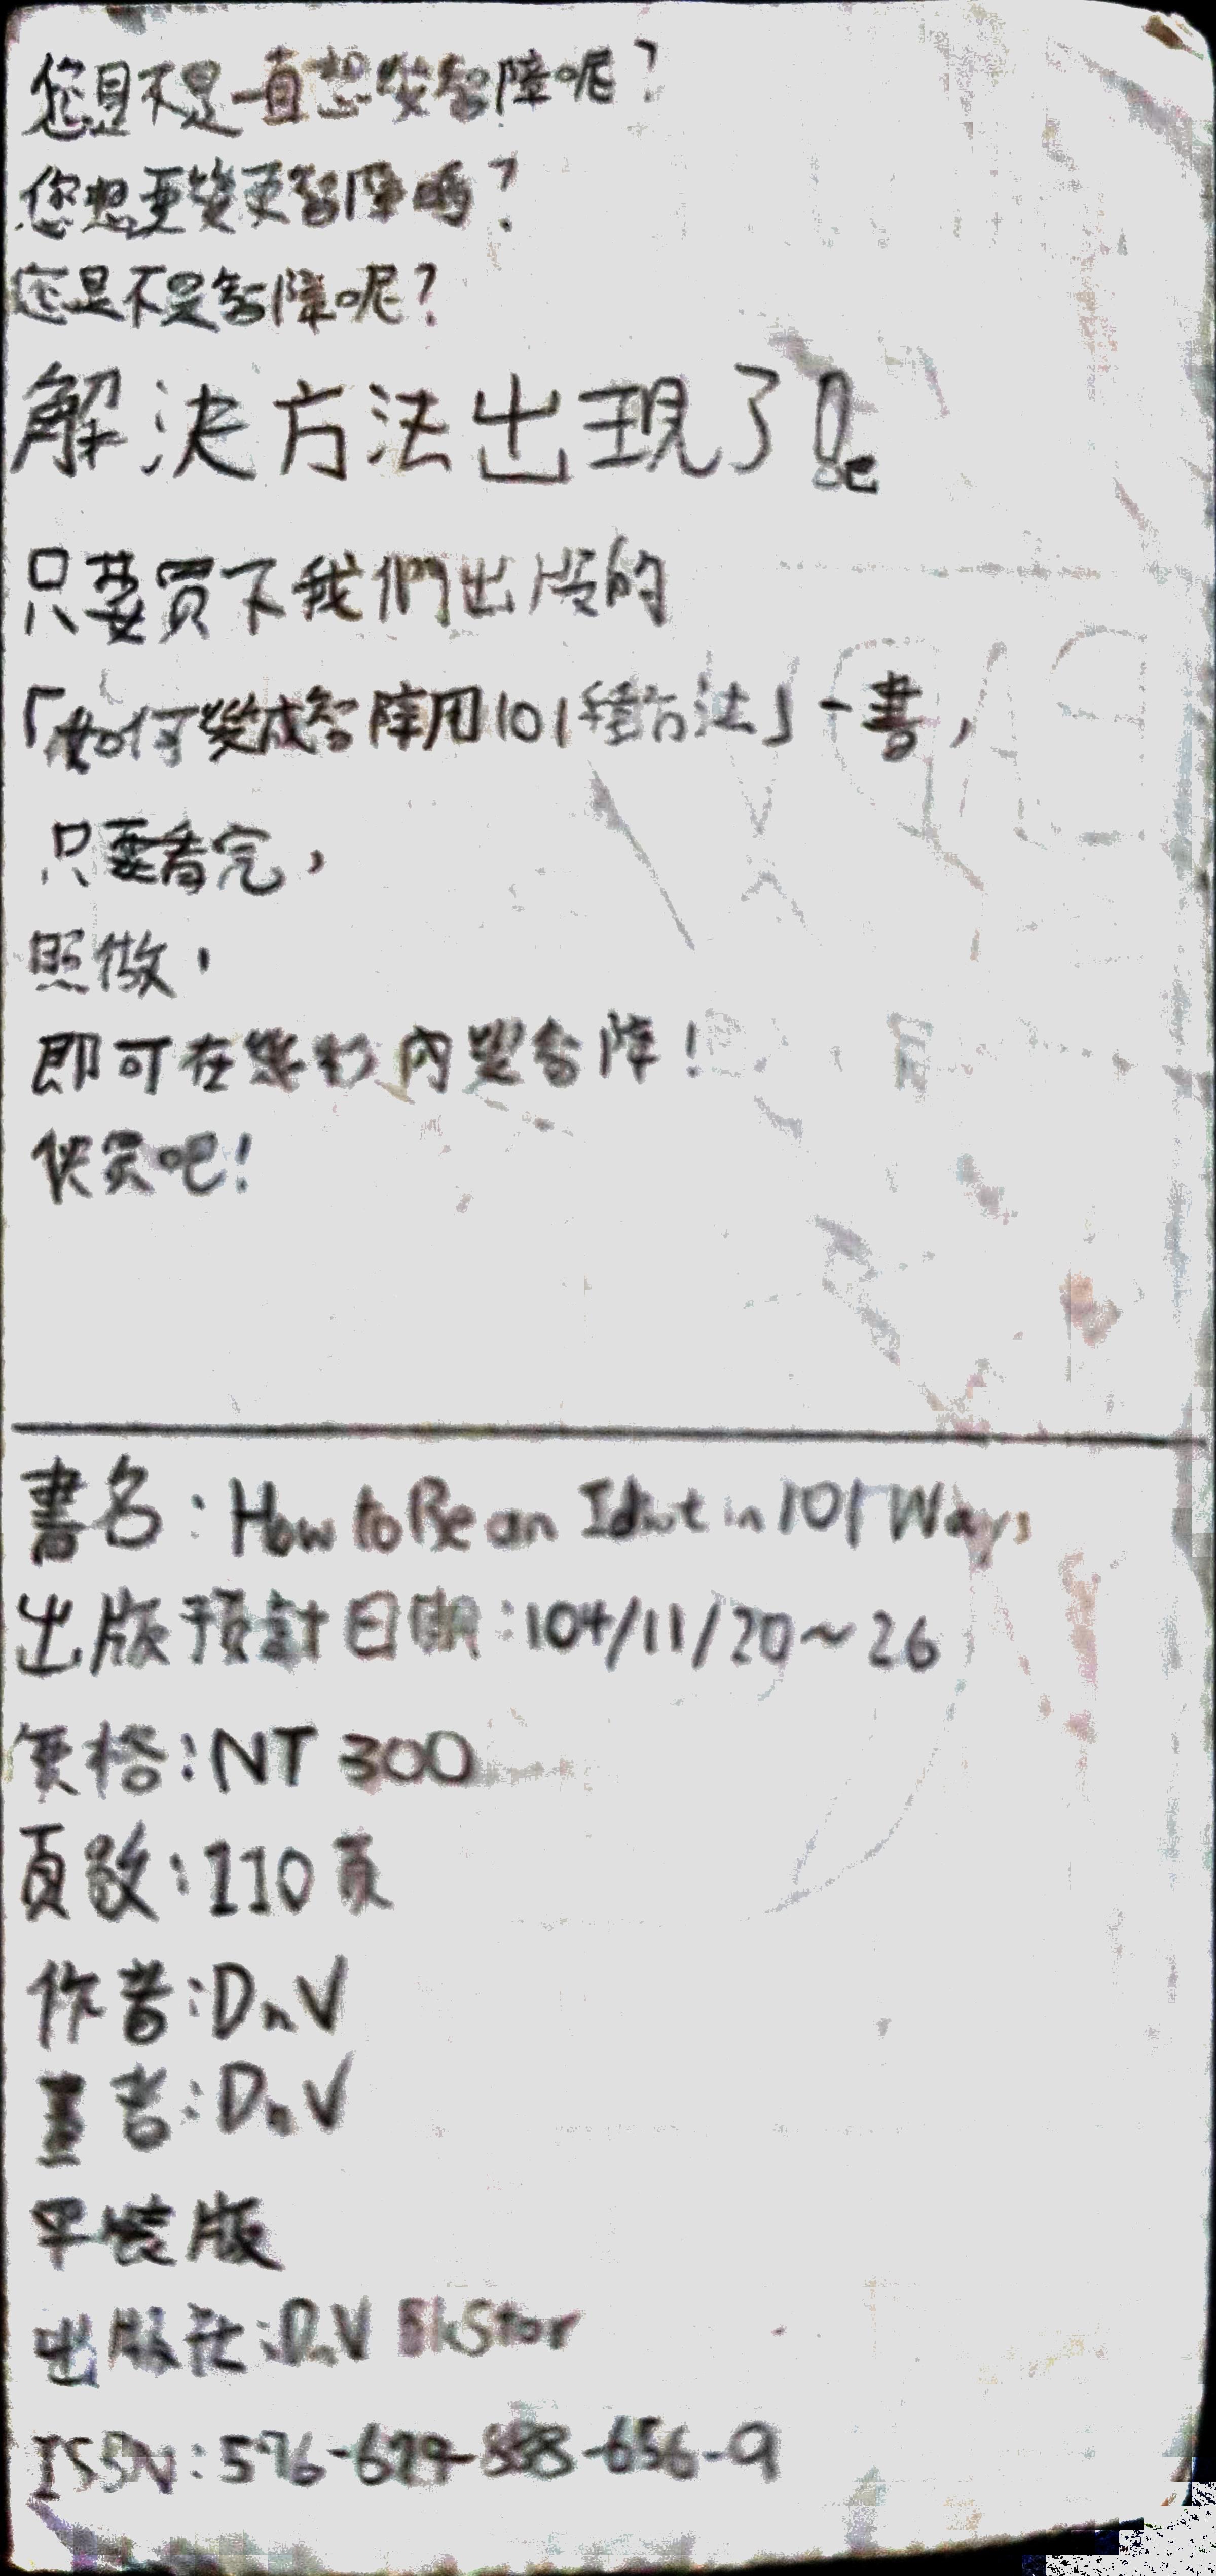 您是不是一直想變智障呢?
您想要變更智障嗎?
您是不是智障呢?
解決方法出現了!
只要買下我們出版的
「如何變成智障用101種方法」一書,
只要看完,
照做,
即可在幾秒內變智障!
快買吧!
書名:How to Be an Idiot in 101 Ways
出版預計日期:104/11/20~26
價格:NT 300
頁數:110頁
作者:DnV
畫者:DnV
平裝版
出版社:DnV
576-679-